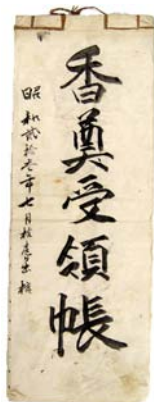 香奠受領帳
昭和貳拾壱年七月